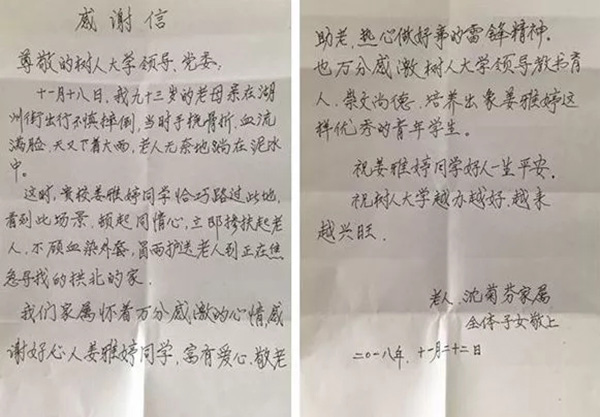 感谢信
尊敬的树人大学领导、党委:
十一月十八日,我九十三岁的老母亲在湖
州街出行不慎摔倒,当时手挽骨折,血流
满脸,天又下着大雨,老人无奈地躺在泥水
中。
这时,贵校姜雅婷同学恰巧路过此地,
看到此场景,顿起同情心,立即搀扶起老
人,不顾血染外套,冒雨护送老人到正在焦
急寻找的拱北的家。
我们家属怀着万分感激的心情,感
谢好心人姜雅婷同学,富有爱心、敬老
助老,热心做好事的雷锋精神。
也万分感激树人大学领导教书育
人、崇文尚德、培养出象姜雅婷这
样优秀的青年学生。
祝姜雅婷同学好人一生平安。
祝树人大学越办越好,越来
越兴旺。
老人、沈菊芬家属
全体子女敬上
二〇一八年、十一月二十二日